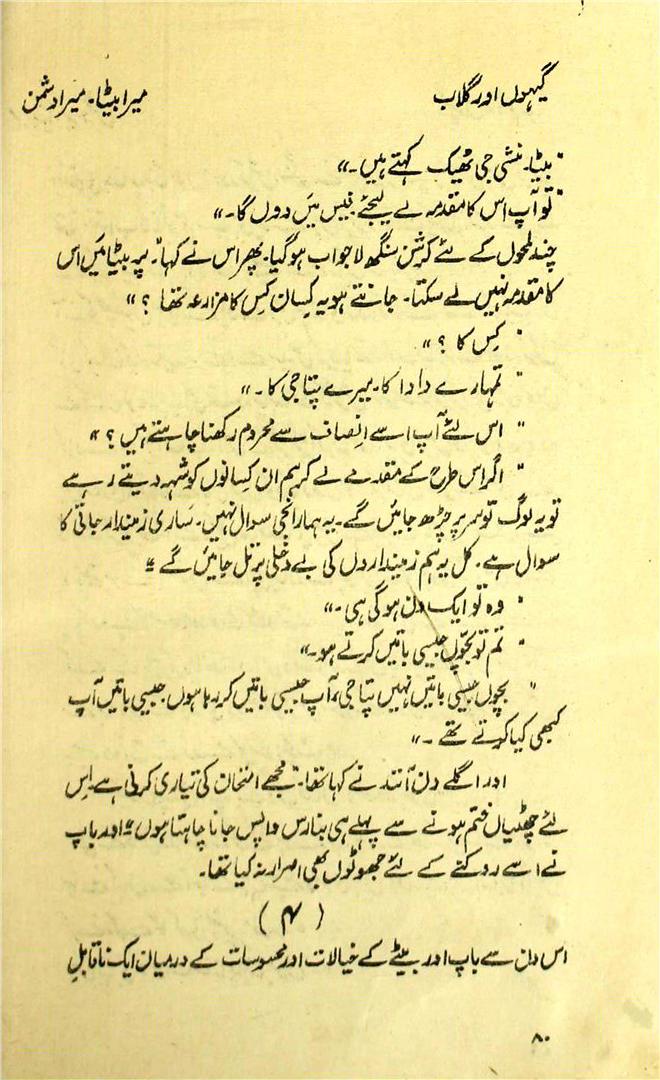 گیہوں اور گلاب
میرا بیٹا۔ میرا دشمن
"بیٹا۔ منشی جی ٹھیک کہتے ہیں۔"
"تو آپ اس کا مقدمہ لے لیجئے فیس میں دوں گا۔"
چند لمحوں کے لئے کرشن سنگھ لاجواب ہو گیا۔ پھر اس نے کہا۔ "پر بیٹا میں اس
کا مقدمہ نہیں لے سکتا۔ جانتے ہو یہ کِسان کِس کا مزارعہ تھا ؟"
"کِس کا ؟"
"تمہارے دادا کا۔ میرے پتا جی کا۔"
"اس لئے آپ اسے انصاف سے محروم رکھنا چاہتے ہیں ؟"
"اگر اس طرح کے مقدمے لے کر ہم ان کسانوں کو شہہ دیتے رہے
تو یہ لوگ تو سر پر چڑھ جائیں گے۔ یہ ہمارا نجی سوال نہیں۔ ساری زمیندار جاتی کا
سوال ہے۔ کل یہ ہم زمینداروں کی بے دخلی پر تل جائیں گے"
"وہ تو ایک دن ہو گی ہی۔"
"تم تو بچّوں جیسی باتیں کرتے ہو۔"
"بچوں جیسی باتیں نہیں پتا جی، آپ جیسی باتیں کر رہا ہوں جیسی باتیں آپ
کبھی کیا کرتے تھے۔"
اور اگلے دن آنند نے کہا تھا۔ "مجھے امتحان کی تیاری کرنی ہے اِس
لئے چھٹیاں ختم ہونے سے پہلے ہی بنارس واپس جانا چاہتا ہوں" اور باپ
نے اسے روکنے کے لئے جھوٹوں بھی اصرار نہ کیا تھا۔
(۴)
اس دن سے باپ اور بیٹے کے خیالات اور محسوسات کے درمیان ایک ناقابلِ
۸۰